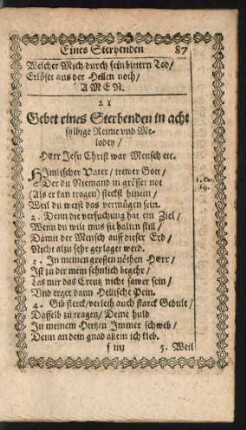 Eines Sterbenden 87
Welcher Mich durch sein bittern Tod/
Erlöset aus der Hellen noth/
AMEN.
21
Gebet eines Sterbenden in acht
sylbige Reime vnd Me-
lodey/
HErr Jesu Christ war Mensch etc.
HImlischer Vater/ trewer Gott/
Der du Niemand in grösser not
(Als er kan tragen) steckst hinein/
Weil du weist das vermügen sein.
2. Denn die versuchung hat ein Ziel/
Wenn du wile mus sie halten still/
Damit der Mensch auff dieser Erd/
Nicht alzu sehr gerlager werd.
3. In meinen grosten nöthen HErr/
Ist zu dir mein sehnlich begehr/
Las mir das Creuz nicht sawer sein/
Vnd erger dann Hellische Pein.
4. Gib sterck/verleih auch starck Gedult/
Dasselb zu tragen/ Deine huld
In meinem Hertzen Immer schweb/
Denn an dein gnad allein ich kleb.
5. Weil